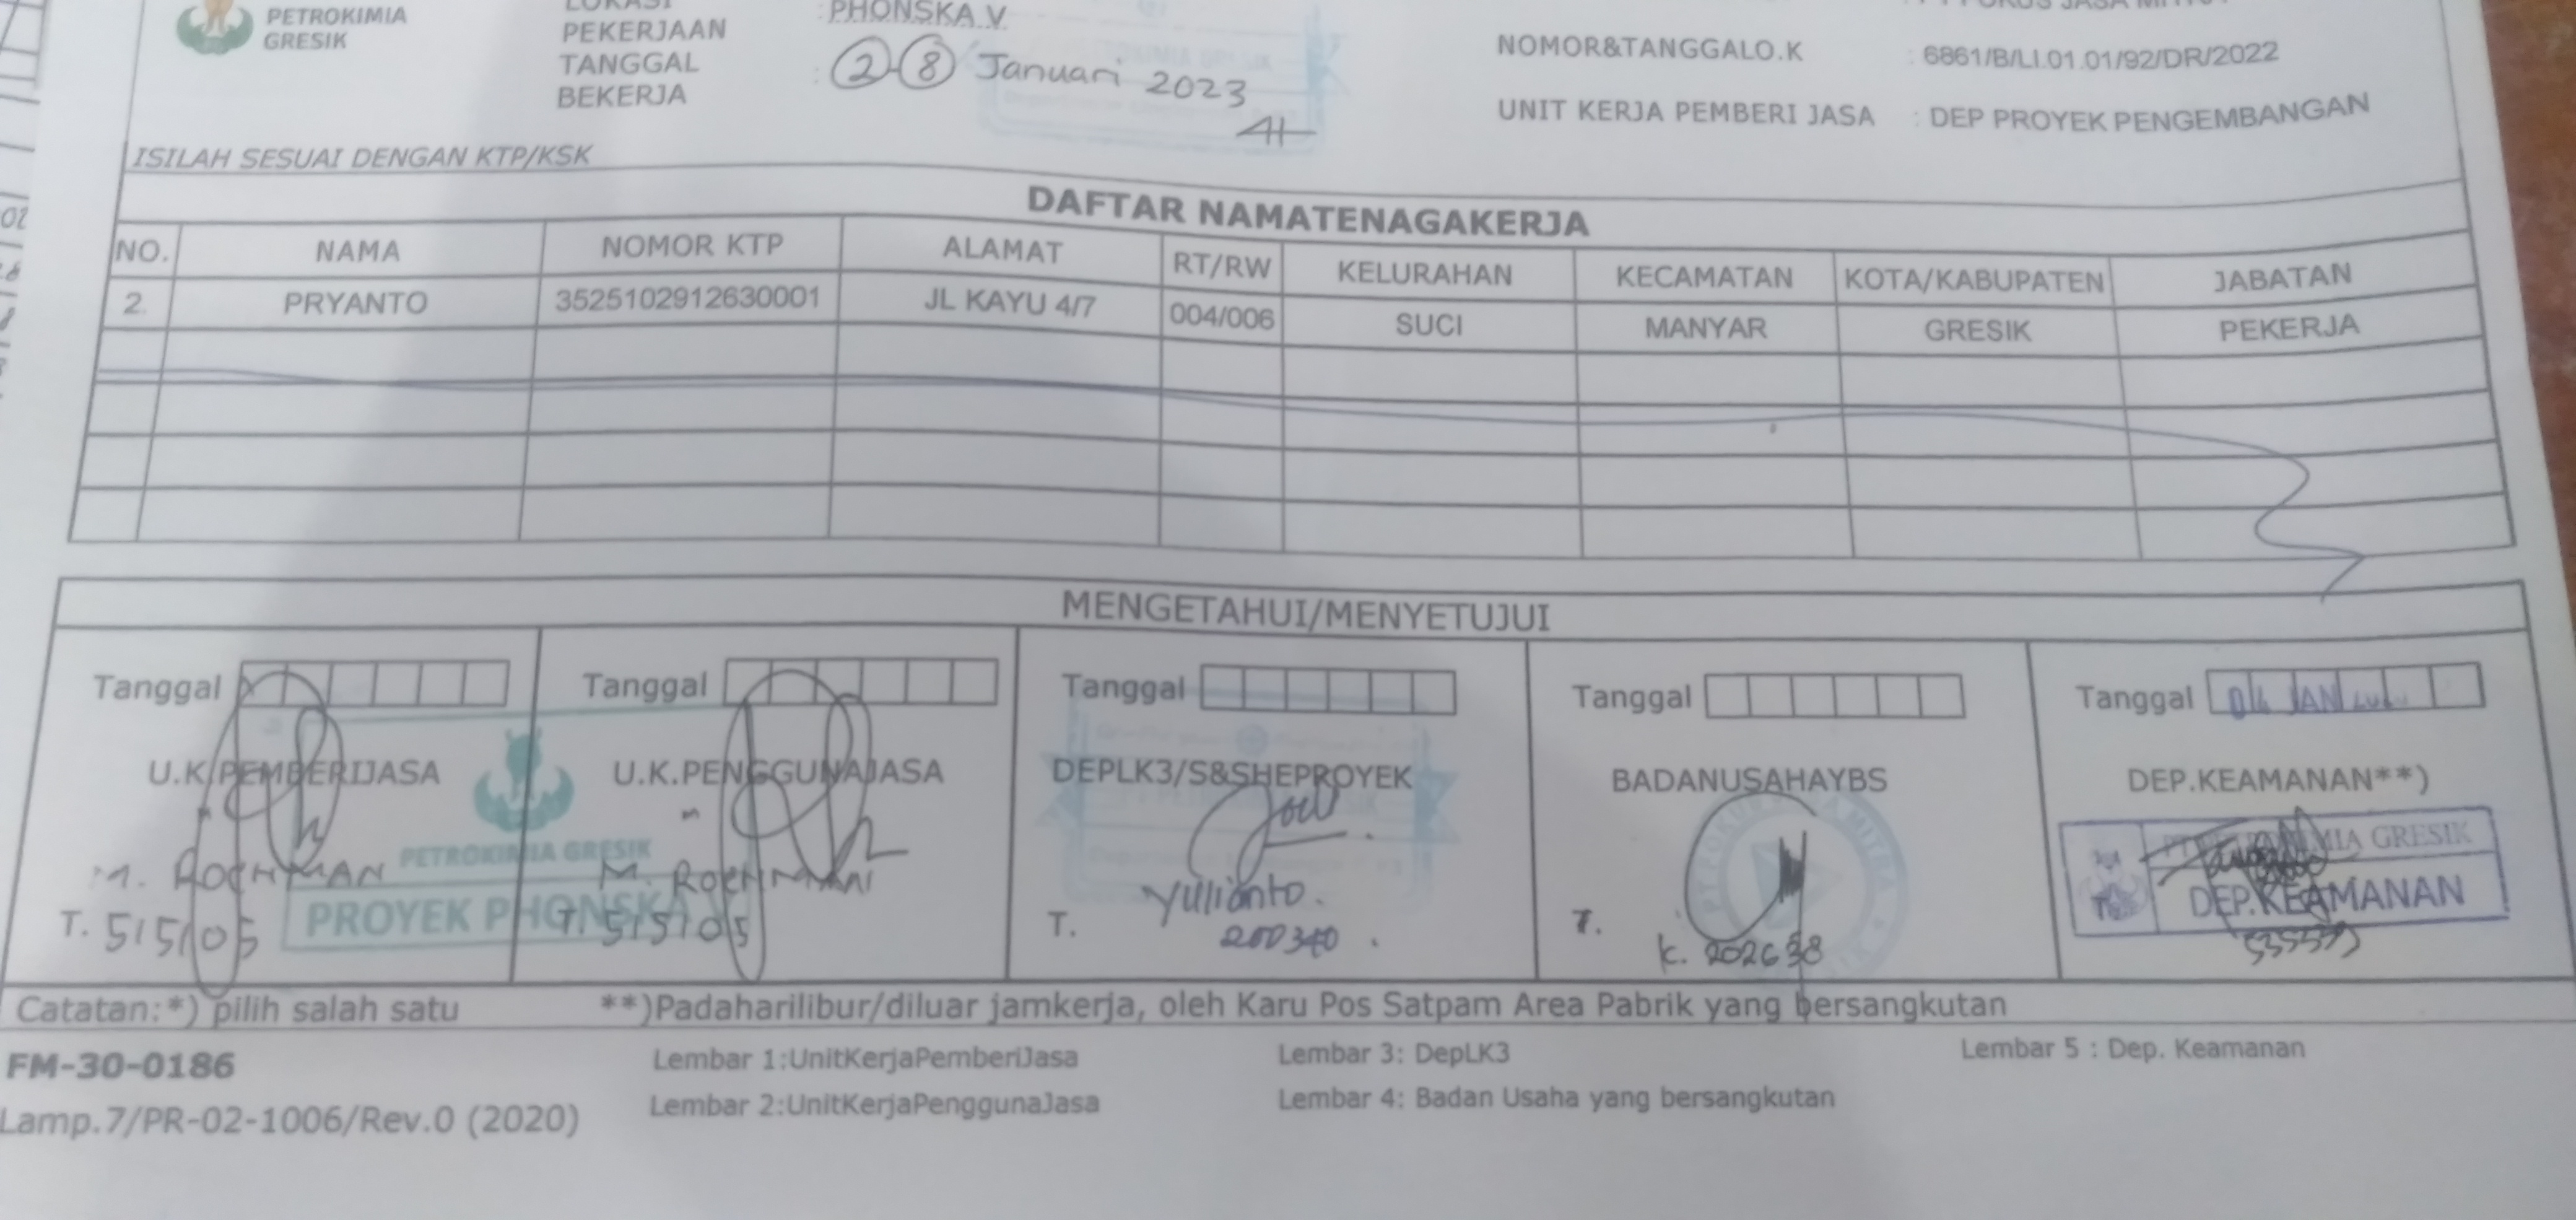 PETROKIMIA
GRESIK
LOKASI
PEKERJAAN
: PHONSKA V
TANGGAL
BEKERJA
: 2-8 Januari 2023
NOMOR&TANGGALO.K : 6861/B/LI.01.01/92/DR/2022
UNIT KERJA PEMBERI JASA : DEP PROYEK PENGEMBANGAN
ISILAH SESUAI DENGAN KTP/KSK
DAFTAR NAMATENAGAKERJA
NO. NAMA NOMOR KTP ALAMAT RT/RW KELURAHAN KECAMATAN KOTA/KABUPATEN JABATAN
2. PRYANTO 3525102912630001 JL KAYU 4/7 004/006 SUCI MANYAR GRESIK PEKERJA
MENGETAHUI/MENYETUJUI
Tanggal Tanggal Tanggal Tanggal Tanggal 04 JAN
U.K.PEMBERIJASA U.K.PENGGUNAJASA DEPLK3/S&SHEPROYEK BADANUSAHAYBS DEP.KEAMANAN**)
M. ROCHMAN
T. 515105
PETROKIMIA GRESIK
PROYEK PHONSKA
M. ROCHMAN
T. 515105
Yulianto.
T. 200340.
T.
K. 202638
PETROKIMIA GRESIK
DEP.KEAMANAN
Catatan:*) pilih salah satu **)Padaharilibur/diluar jamkerja, oleh Karu Pos Satpam Area Pabrik yang bersangkutan
FM-30-0186
Lamp.7/PR-02-1006/Rev.0 (2020)
Lembar 1:UnitKerjaPemberiJasa
Lembar 2:UnitKerjaPenggunaJasa
Lembar 3: DepLK3
Lembar 4: Badan Usaha yang bersangkutan
Lembar 5 : Dep. Keamanan